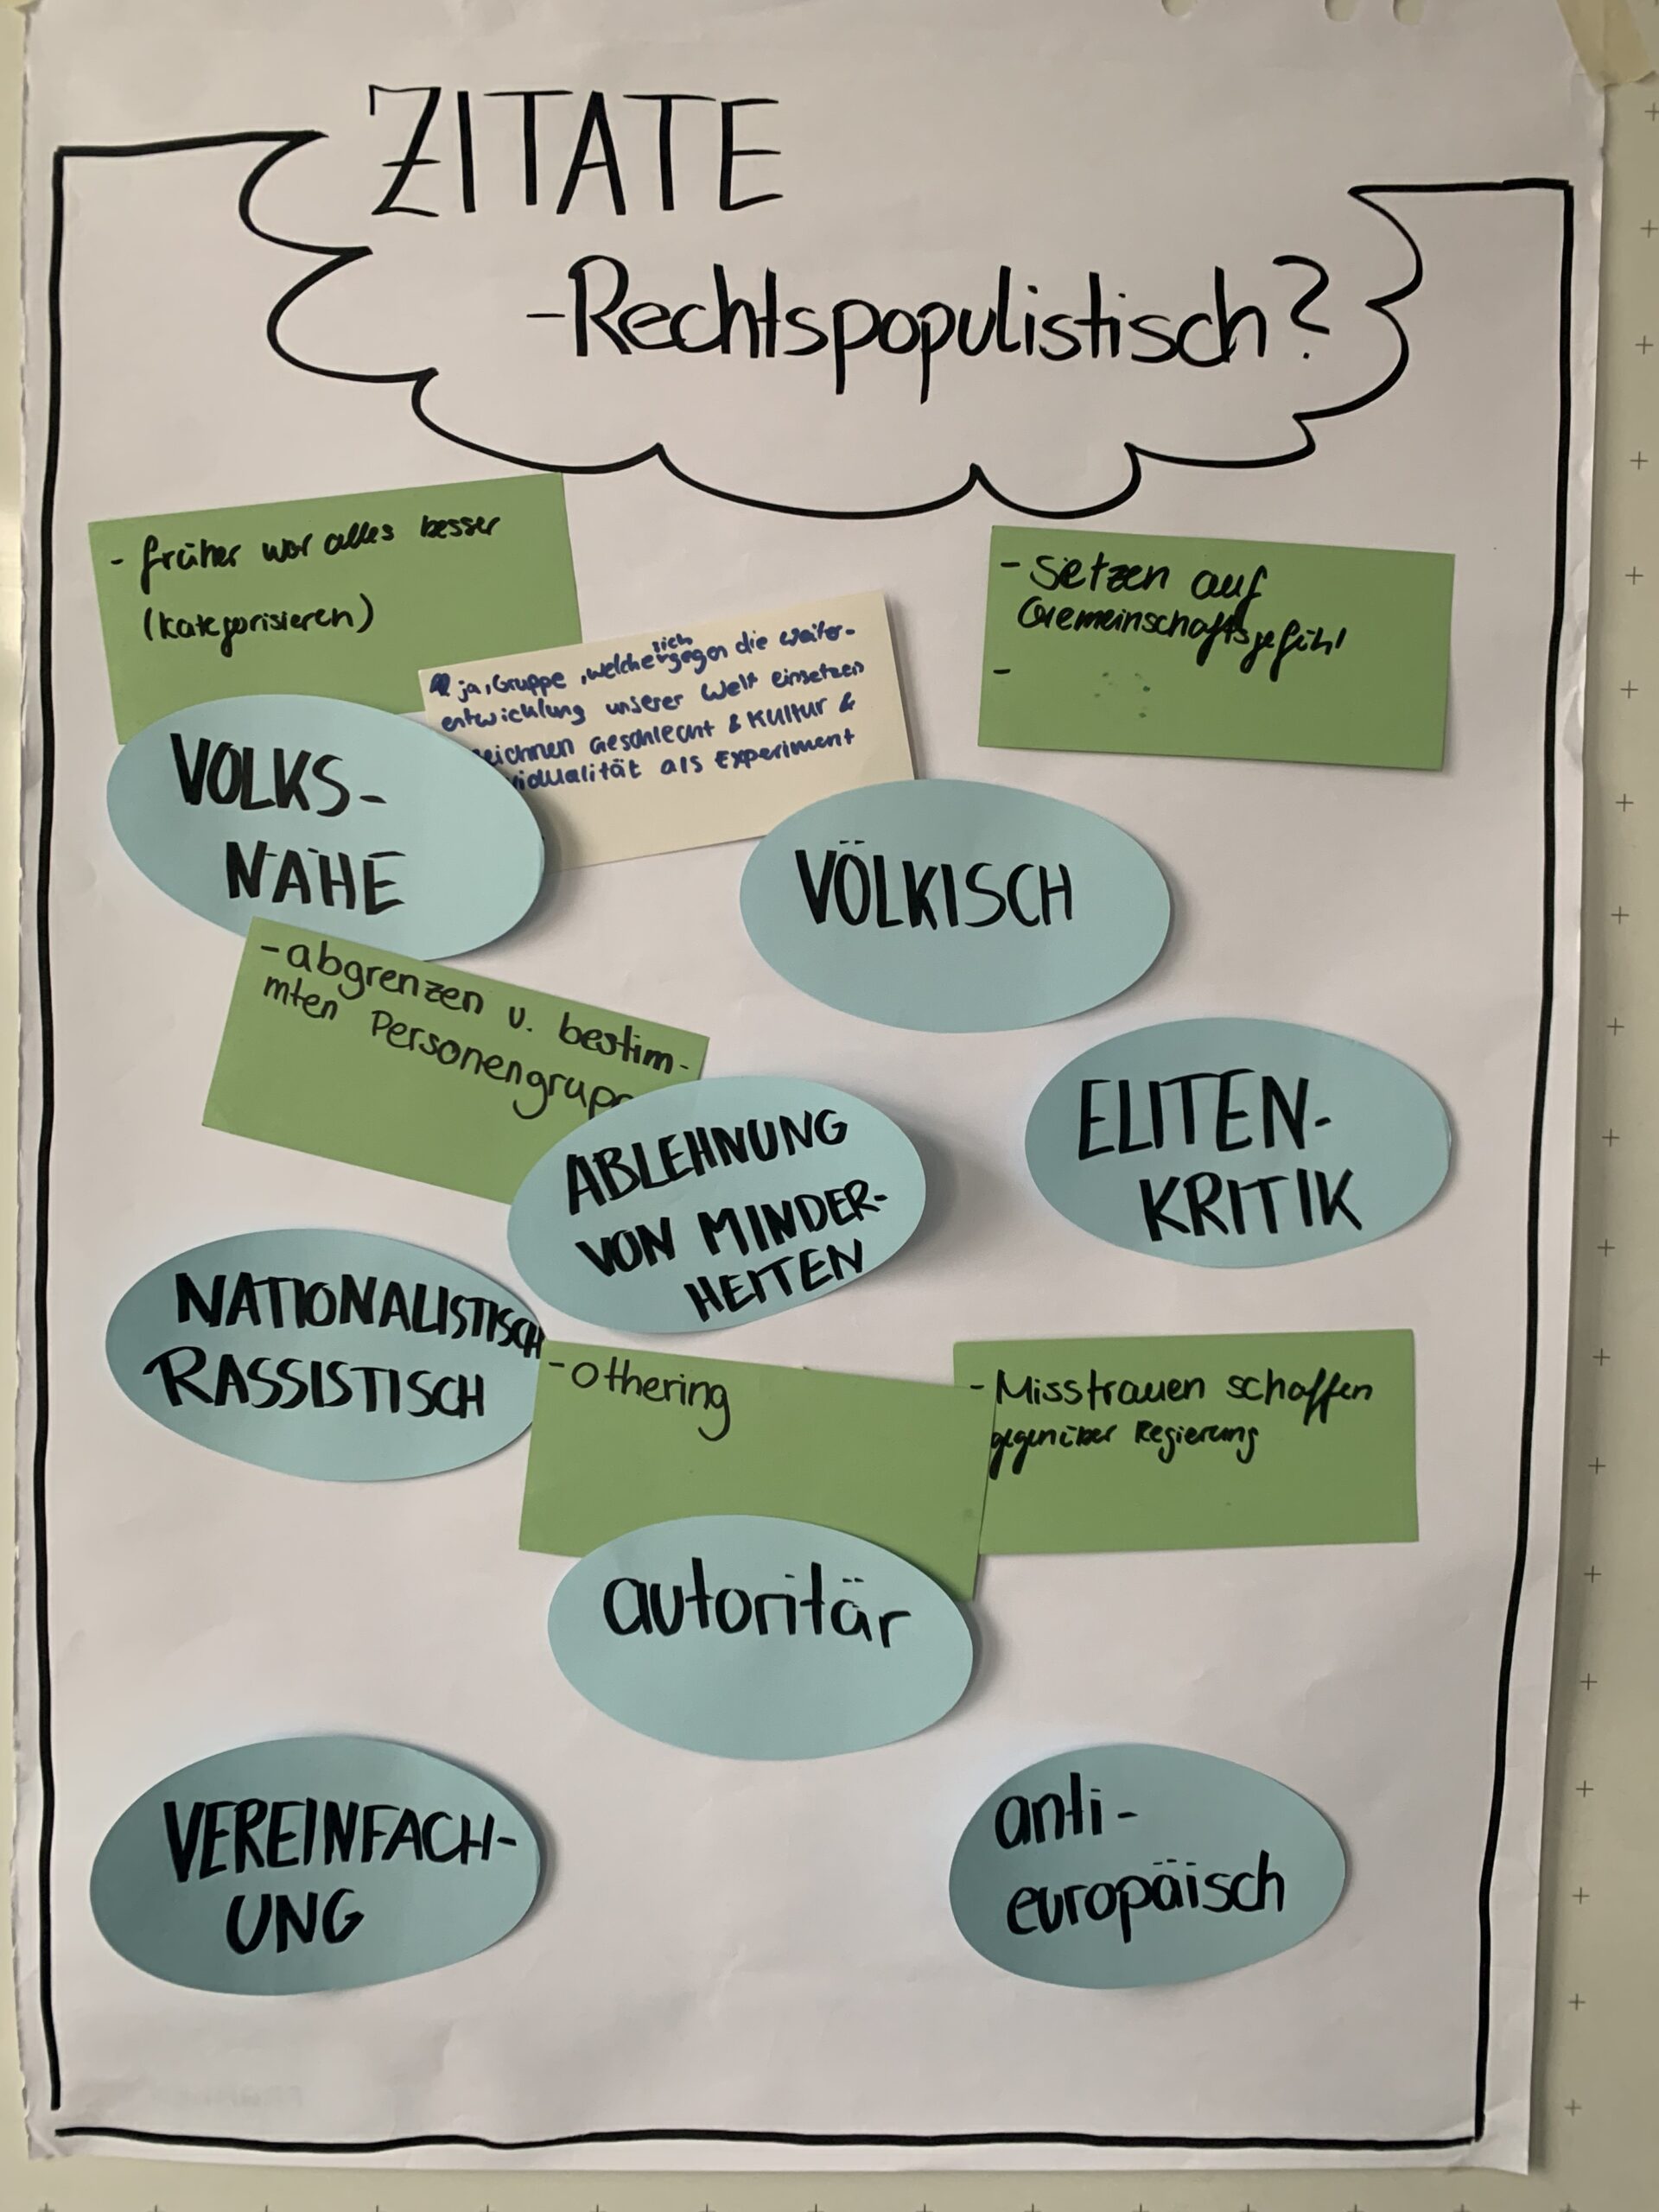 ZITATE
-Rechtspopulistisch?
- früher war alles besser
(kategorisieren)
ja, Gruppe, welche sich gegen die weiter-
entwicklung unserer Welt einsetzen
eichnen Geschlecht & Kultur &
vidualität als Experiment
- setzen auf
Gemeinschaftsgefühl
-
VOLKS-
NÄHE
VÖLKISCH
- abgrenzen v. bestim-
mten Personengrupp
ELITEN-
KRITIK
ABLEHNUNG
VON MINDER-
HEITEN
NATIONALISTISCH
RASSISTISCH
- Othering
- Misstrauen schaffen
gegenüber Regierung
autoritär
VEREINFACH-
UNG
anti-
europäisch